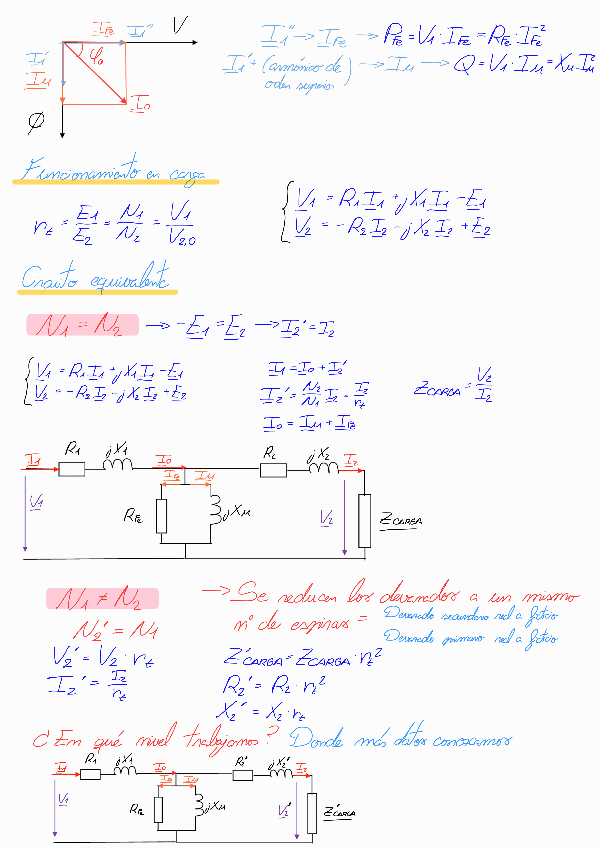 I_Fe I₁'' V
I₁'' → I_Fe → P_Fe = V₁·I_Fe = R_Fe·I_Fe²
I₁' φ₀
I₁' + (armónico de orden superior) → I_μ → Q = V₁·I_μ = X_μ·I_μ²
I_μ
I₀
Φ
Funcionamiento en carga
r_t = E₁/E₂ = N₁/N₂ = V₁/V₂,₀
V₁ = R₁I₁ + jX₁I₁ - E₁
V₂ = -R₂I₂ - jX₂I₂ + E₂
Circuito equivalente
N₁ = N₂ → -E₁ = E₂ → I₂' = I₂
V₁ = R₁I₁ + jX₁I₁ - E₁
V₂ = -R₂I₂ - jX₂I₂ + E₂
I₁ = I₀ + I₂'
I₂' = N₂/N₁ I₂ = I₂/r_t
I₀ = I_μ + I_Fe
Z_CARGA = V₂/I₂
I₁ R₁ jX₁ I₀ R₂ jX₂ I₂
I_Fe I_μ
V₁ R_Fe jX_μ V₂ Z_CARGA
N₁ ≠ N₂ → Se reducen los devanados a un mismo
nº de espiras = Devanado secundario real a ficticio
Devanado primario real a ficticio
N₂' = N₁
V₂' = V₂·r_t
I₂' = I₂/r_t
Z'_CARGA = Z_CARGA·r_t²
R₂' = R₂·r_t²
X₂' = X₂·r_t
¿En qué nivel trabajamos? Donde más datos conozcamos
I₁ R₁ jX₁ I₀ R₂' jX₂' I₂
I_Fe I_μ
V₁ R_Fe jX_μ V₂' Z'_CARGA